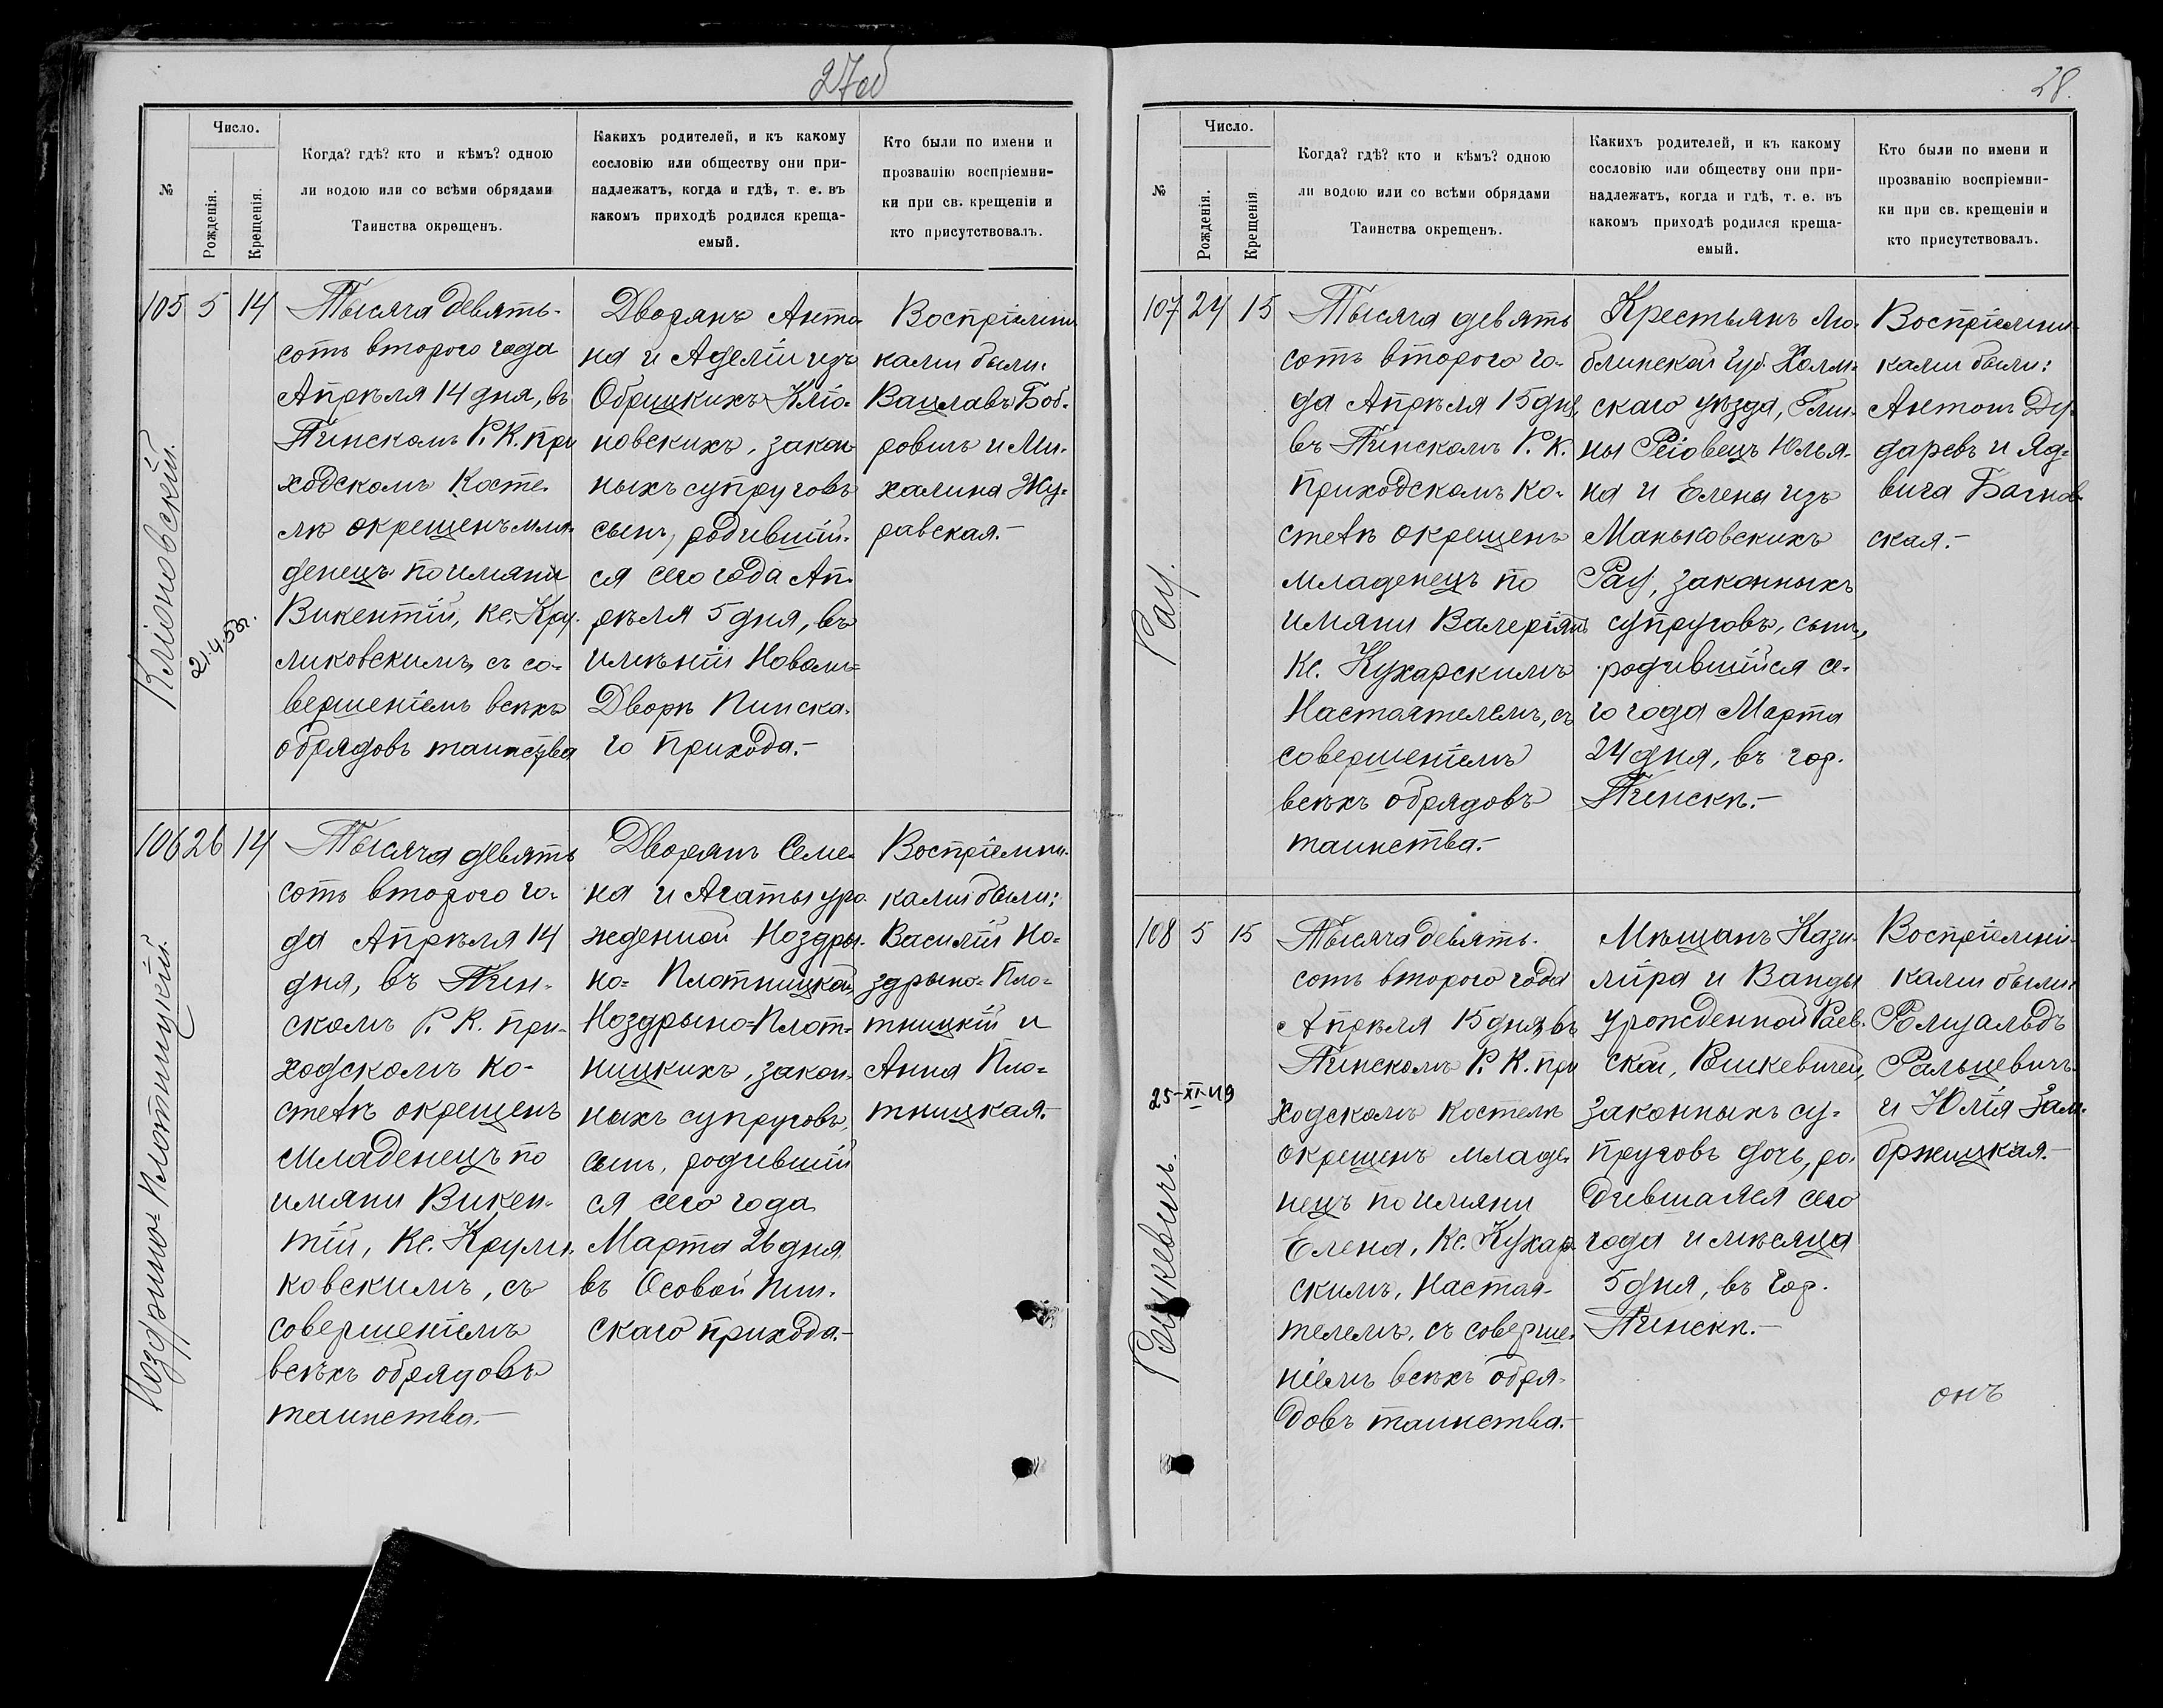 27об
№
Число.
Рожденія.
Крещенія.
Когда? гдѣ? кто и кѣмъ? одною
ли водою или со всѣми обрядами
Таинства окрещенъ.
Каких родителей, и къ какому
сословію или обществу они при-
надлежатъ, когда и гдѣ, т. е. въ
какомъ приходѣ родился креща-
емый.
Кто были по имени и
прозванію воспріемни-
ки при св. крещеніи и
кто присутствовалъ.
Кліоновскій.
21.4.58г.
105 5 14
Тысяча девять-
сотъ второго года
Апрѣля 14 дня, въ
Пинскомъ Р. К. при
ходскомъ Косте-
лѣ окрещенъ мла-
денецъ по имяни
Викентій, кс. Кру-
ликовскимъ, съ со-
вершеніемъ всѣхъ
обрядовъ таинства
Дворянъ Анто-
на и Аделіи изъ
Обрицкихъ Кліо-
новскихъ, закон
ныхъ супруговъ
сынъ, родившій-
ся сего года Ап-
рѣля 5 дня, въ
имѣніи Новомъ-
Дворѣ Пинска-
го прихода.-
Воспріемни
ками были:
Вацлавъ Боб-
ровичъ и Ми-
халина Жу-
равская.-
Ноздрино-Плотницкій.
106 26 14
Тысяча девять
сотъ второго го-
да Апрѣля 14
дня, въ Пин-
скомъ Р. К. при-
ходскомъ Ко-
стелѣ окрещенъ
младенецъ по
имяни Викен-
тій, Кс. Крули-
ковскимъ, съ
совершеніемъ
всѣхъ обрядовъ
таинства.-
Дворянъ Семе-
на и Агаты уро-
жденной Ноздры-
но-Плотницкой,
Ноздрыно-Плот-
ницкихъ, закон-
ныхъ супруговъ,
сынъ, родившій
ся сего года
Марта 26 дня
въ Осовой Пин-
скаго прихода.-
Воспріемни-
ками были:
Василій Но-
здрыно-Пло-
тницкій и
Анна Пло-
тницкая.-
28.
№
Число.
Рожденія.
Крещенія
Когда? гдѣ? кто и кѣмъ? одною
ли водою или со всѣми обрядами
Таинства окрещенъ.
Каких родителей, и къ какому
сословію или обществу они при-
надлежатъ, когда и гдѣ, т. е. въ
какомъ приходѣ родился креща-
емый.
Кто были по имени и
прозванію воспріемни-
ки при св. крещеніи и
кто присутствовалъ.
Рау.
107 24 15
Тысяча девять
сотъ второго го-
да Апрѣля 15 дня,
въ Пинскомъ Р. К.
приходскомъ Ко-
стелѣ окрещенъ
младенецъ по
имяни Валеріянъ
Кс. Кухарскимъ
Настоятелемъ, съ
совершеніемъ
всѣхъ обрядовъ
таинства.-
Крестьянъ Лю-
блинской губ. Холм-
скаго уѣзда, Гми-
ны Реіовецъ Юлья-
на и Елены изъ
Маньковскихъ
Рау, законныхъ
супруговъ, сынъ,
родившійся се-
го года Марта
24 дня, въ гор.
Пинскѣ.-
Воспріемни-
ками были:
Антонъ Ду-
даревъ и Яд-
вига Багнов-
ская.-
Рацкевичъ.
25-XI-49
108 5 15
Тысяча девять-
сотъ второго года
Апрѣля 15 дня, въ
Пинскомъ Р. К. при
ходскомъ Костелѣ
окрещенъ младе-
нецъ по имяни
Елена, Кс. Кухар-
скимъ, Настоя-
телемъ, съ соверше-
ніемъ всѣхъ обря-
довъ таинства.-
Мѣщанъ Кази-
міра и Ванды
урожденной Раев-
ской,
законныхъ су-
пруговъ дочь, ро-
дившаяся сего
года и мѣсяца
5 дня, въ гор.
Пинскѣ.-
Воспріемни-
ками были:
Ромуальдъ
Ральцевичъ
и Юлія Зам-
бржицкая.-
онъ